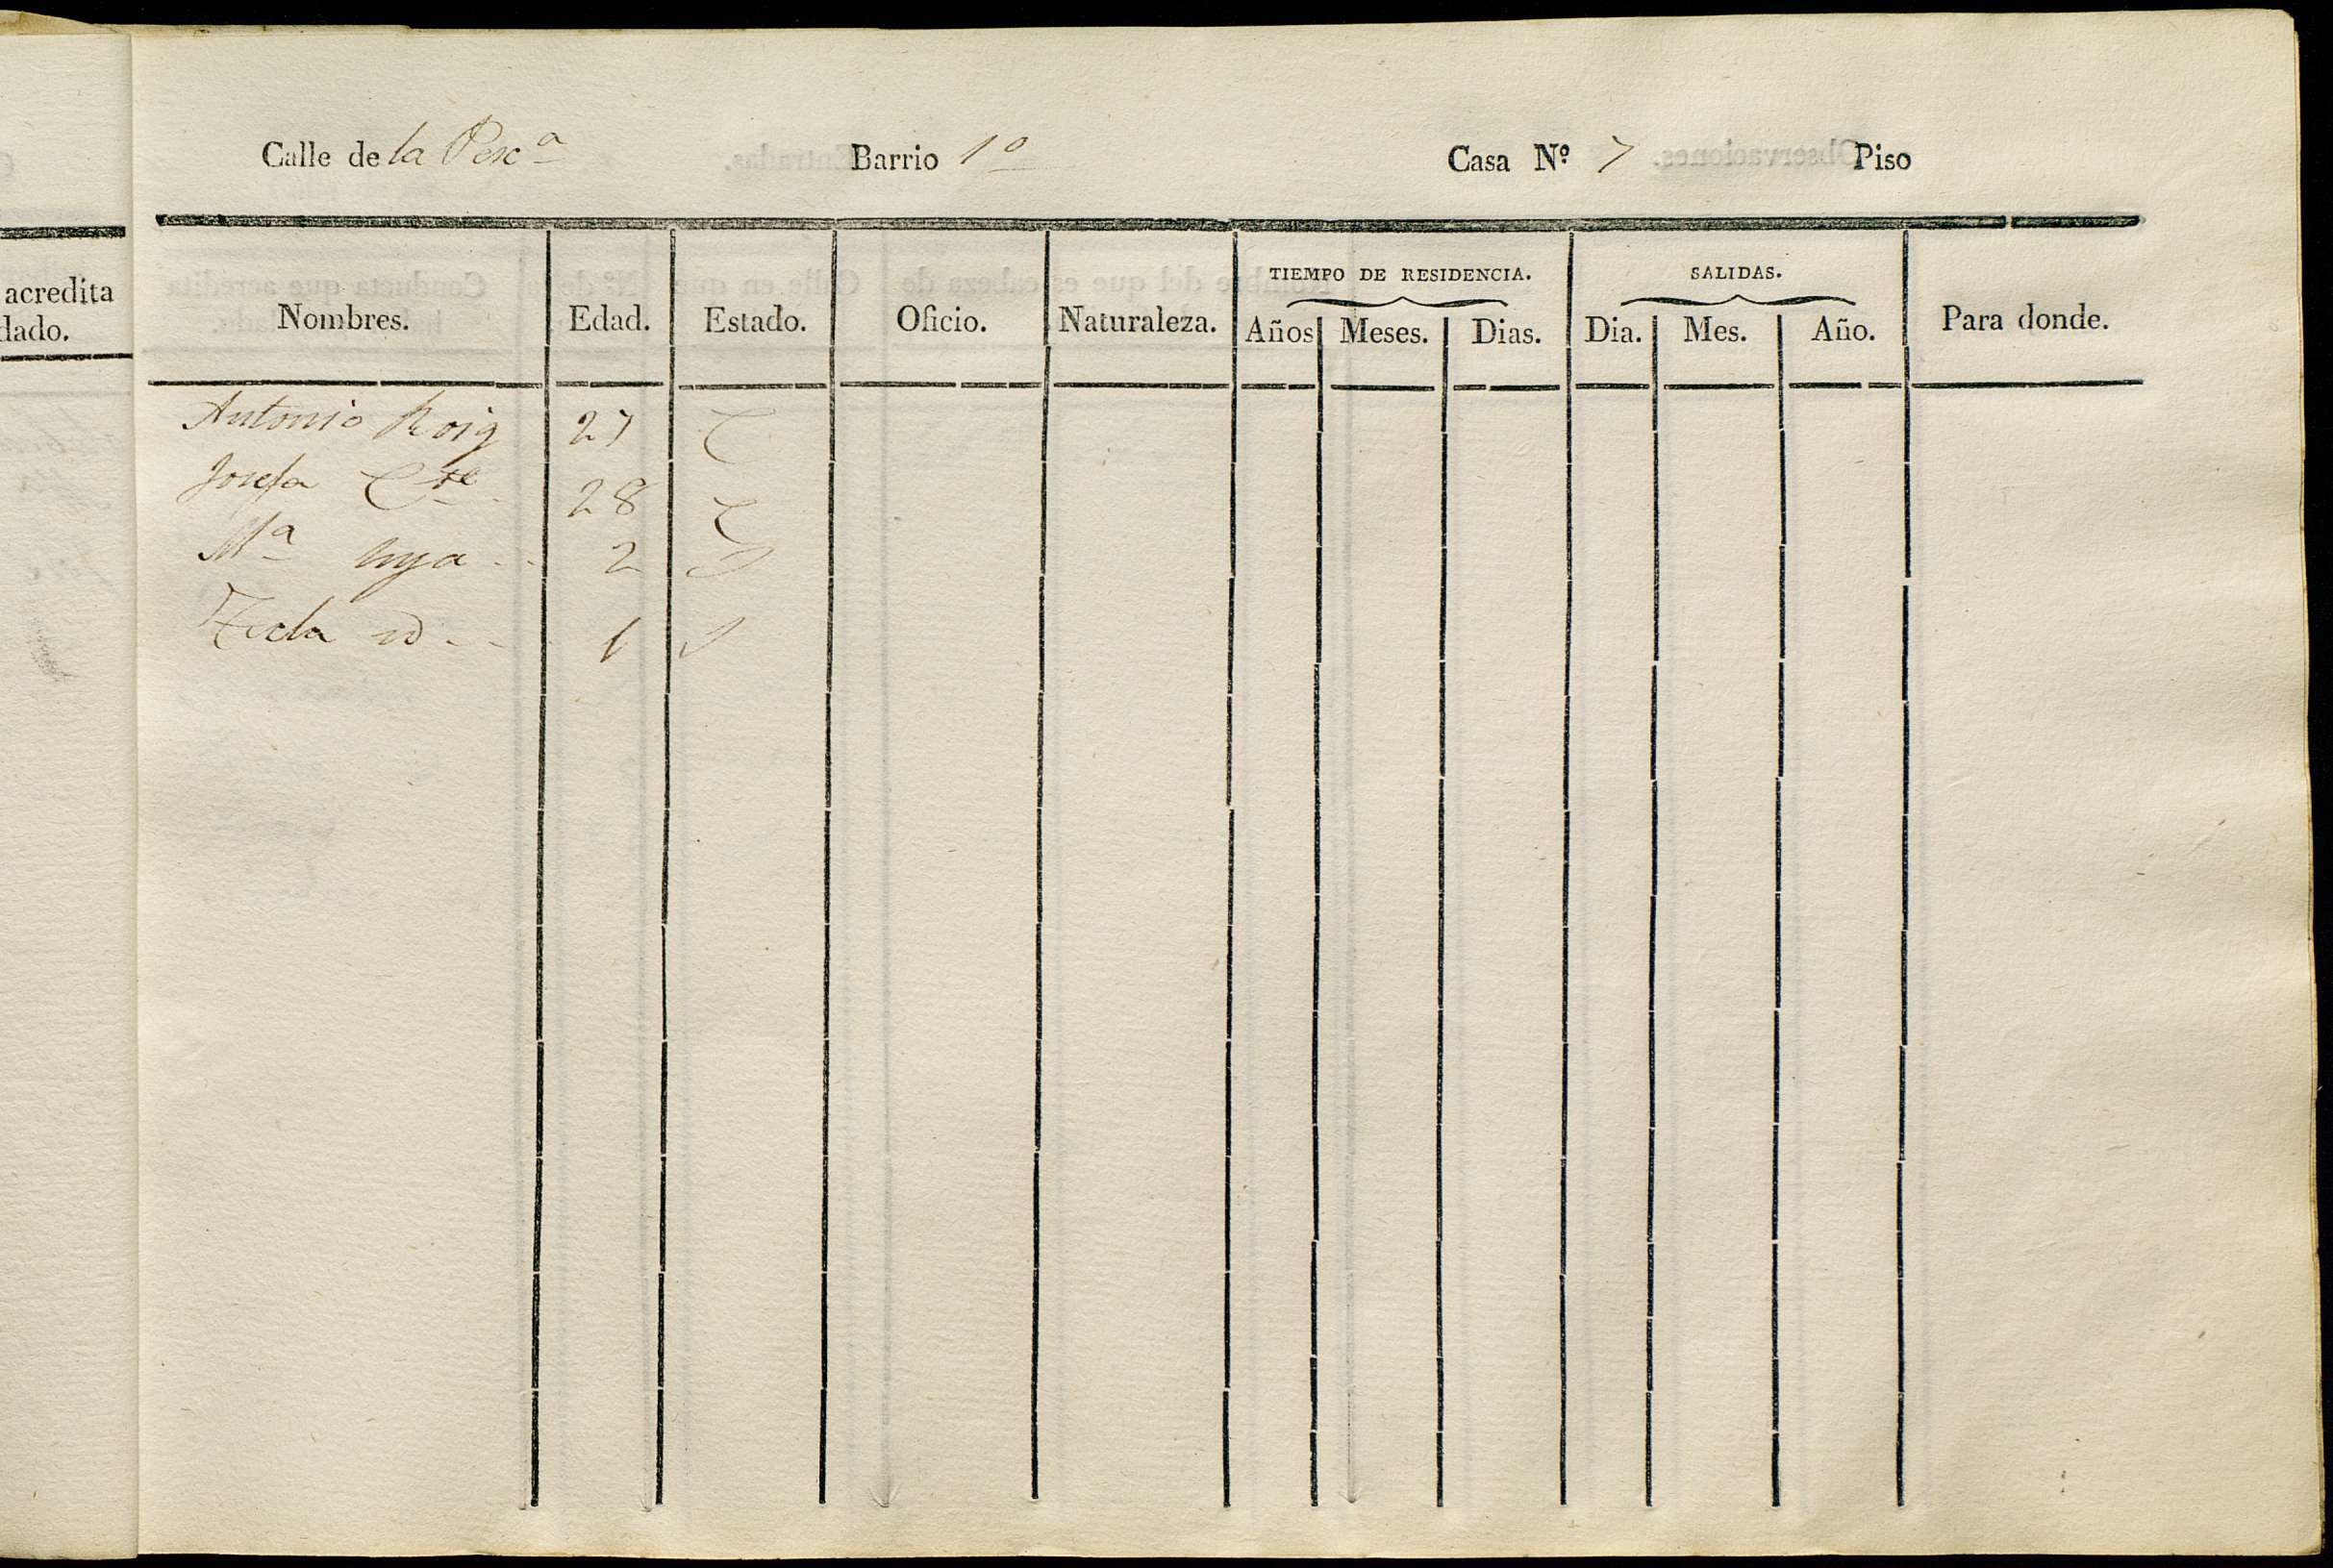 Calle de la Pexª Barrio 1º Casa Nº 7 Piso
acredita
dado.
TIEMPO DE RESIDENCIA. SALIDAS.
Nombres. Edad. Estado. Oficio. Naturaleza. Años Meses. Dias. Dia. Mes. Año. Para donde.
Antonio Roig 27 C
Josefa 28 C
Mª hija 2 S
Tecla id 1 S